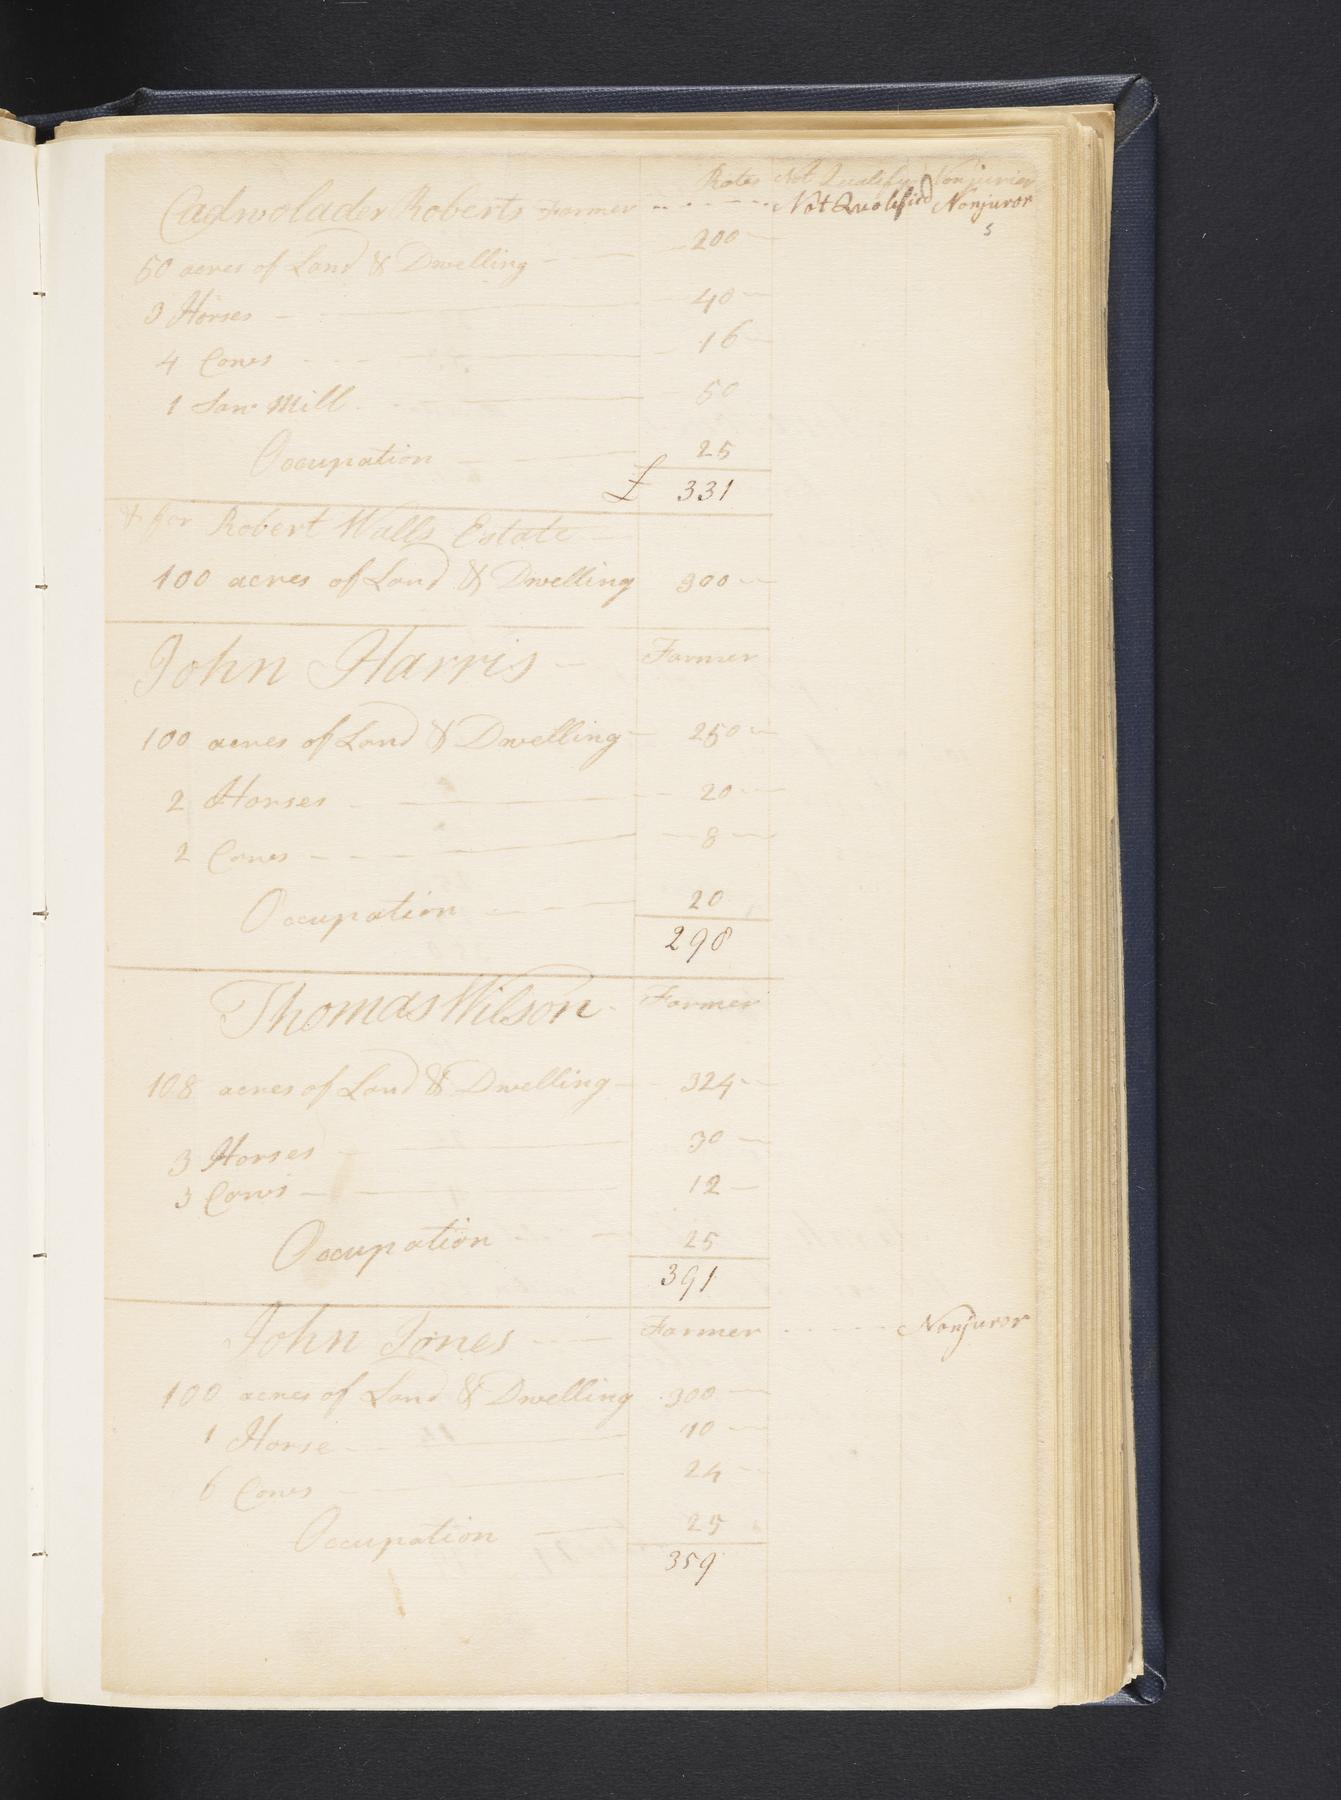 Rates Not Qualify'd Nonjurier
Cadwolader Roberts Farmer Not Qualified Nonjuror
s
50 acres of Land & Dwelling 200
3 Horses 40
4 Cows 16
1 Saw Mill 50
Occupation 25
£ 331
& for Robert Walls Estate
100 acres of Land & Dwelling 300
John Harris Farmer
100 acres of Land & Dwelling 250
2 Horses 20
2 Cows 8
Occupation 20
298
Thomas Wilson Farmer
108 acres of Land & Dwelling 324
3 Horses 30
3 Cows 12
Occupation 25
391
John Jones Farmer Nonjuror
100 acres of Land & Dwelling 300
1 Horse 10
6 Cows 24
Occupation 25
359